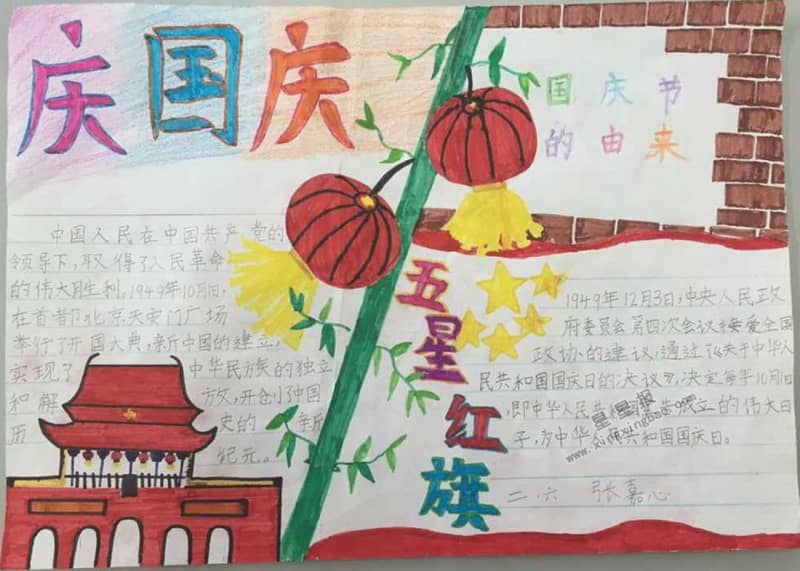 庆国庆
国庆节
的由来
中国人民在中国共产党的
领导下,取得了人民革命
的伟大胜利。1949年10月1日,
在首都北京天安门广场
举行了开国大典,新中国的建立,
实现了中华民族的独立
和解放,开创了中国
历史的新
纪元。
五星红旗
1949年12月3日,中央人民政
府委员会第四次会议接爱全国
政协的建议,通过了《关于中华人
民共和国国庆日的决议》,决定每年10月1日
,即中华人民共
独立的伟大日
子,为中华人民共和国国庆日。
星星报
www.xingxingbao.com
二.六 张嘉心